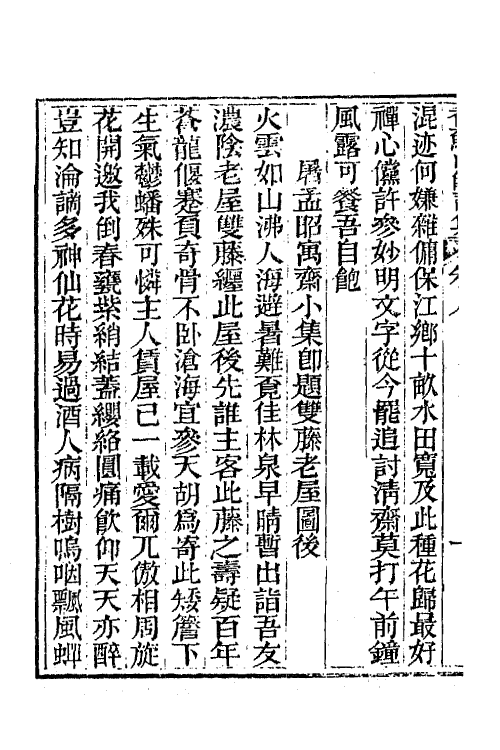 混迹何嫌雜傭保江鄉十畝水田寬及此種花歸最好
禪心儻許參妙明文字從今罷追討淸齋莫打午前鐘
風露可餐吾自飽
屠孟昭寓齋小集卽題雙藤老屋圖後
火雲如山沸人海避暑難覓佳林泉早晴暫出詣吾友
濃陰老屋雙藤纏此屋後先誰主客此藤之壽疑百年
蒼龍偃蹇頁奇骨不卧滄海宜參天胡爲寄此矮簷下
生氣鬱蟠殊可憐主人賃屋已一載愛爾兀傲相周旋
花開邀我倒春甕紫綃結蓋纓絡圓痛飮仰天天亦醉
豈知淪謫多神仙花時易過酒人病隔樹嗚咽飄風蟬